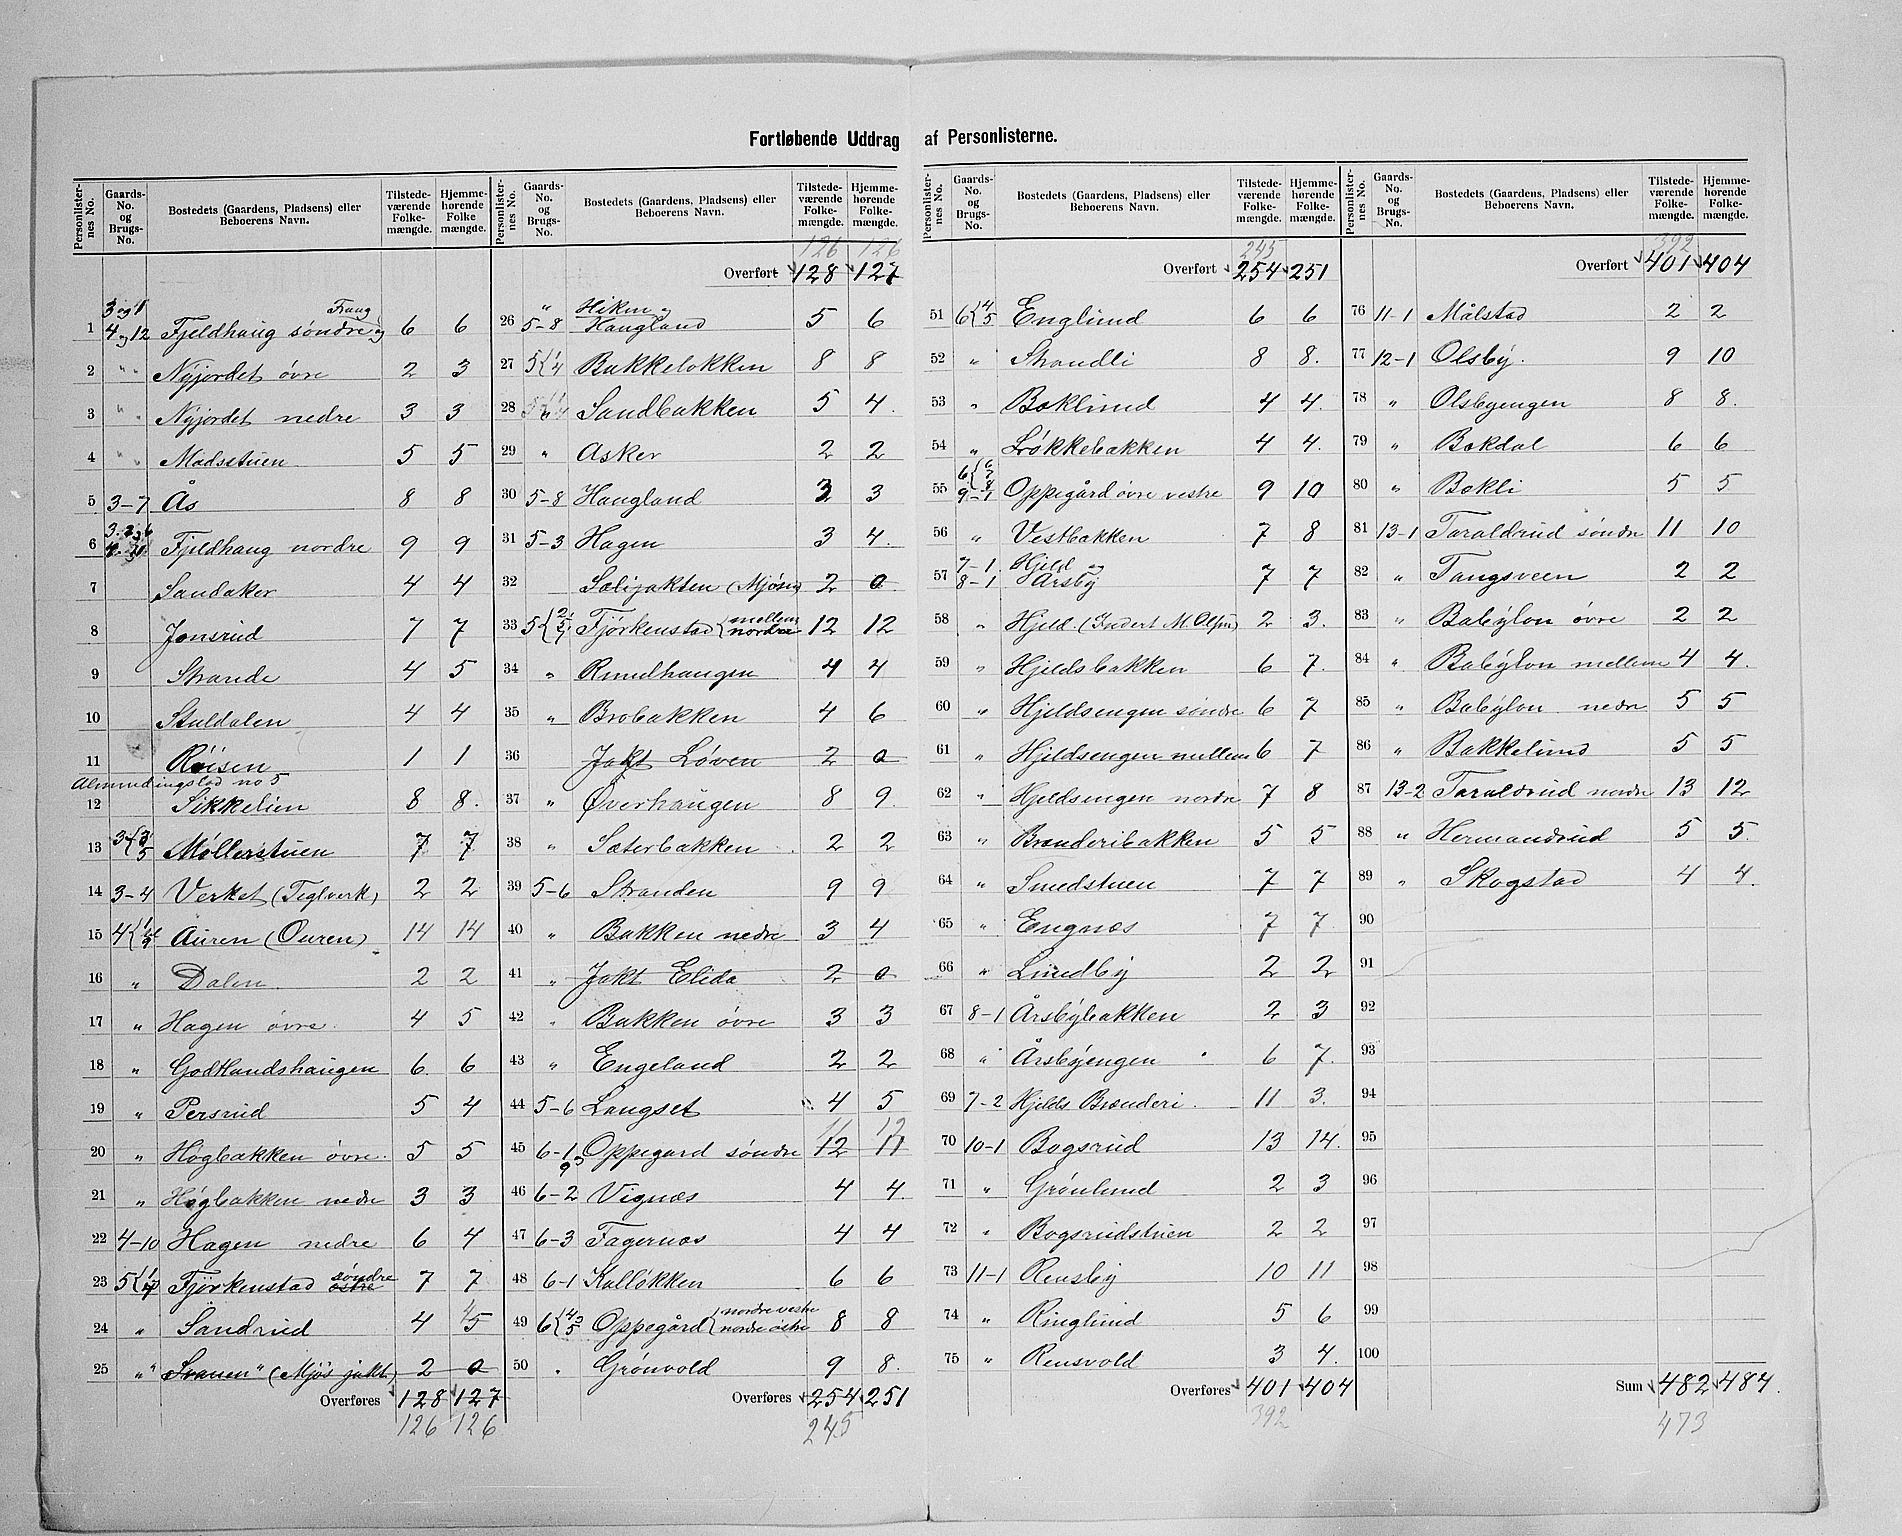 Fortløbende Uddrag af Personlisterne.
Personlister-nes No. | Gaards-No. og Brugs-No. | Bostedets (Gaardens, Pladsens) eller Beboerens Navn. | Tilstede-værende Folke-mængde. | Hjemme-hørende Folke mængde.
1 3 og 1 4 og 12 Fjeldhaug søndre og Fraug 6 6
2 " " Nyjordet øvre 2 3
3 " " Nyjordet nedre 3 3
4 " " Madsstuen 5 5
5 3-7 Ås 8 8
6 Fjeldhaug nordre 9 9
7 Sandaker 4 4
8 Jonsrud 7 7
9 Strande 4 5
10 Stuldalen 4 4
11 Røisen 1 1
Almendingslod no 5
12 Sikkelien 8 8.
13 3{3 5 Møllerstuen 7 7
14 3-4 Verket (Teglverk) 2 2
15 Auren (Ouren) 14 14
16 " Dalen 2 2
17 " Hagen øvre 4 5
18 " Godtlandshaugen 6 6
19 " Persrud 5 4
20 " Høgbakken øvre. 5 5
21 " Høgbakken nedre 3 3
22 4-10 Hagen nedre 6 4
23 5{1 4 Fjørkenstad søndre østre 7 7
24 " Sandrud 4 4 5
25 " "Svanen" (Mjøs jakt) 2 0
Overføres 128 127
126 126
Personlister-nes No. | Gaards-No. og Brugs-No. | Bostedets (Gaardens, Pladsens) eller Beboerens Navn. | Tilstede-værende Folke-mængde. | Hjemme-hørende Folke-mængde.
126 126
Overført 128 127
26 " 5-8 Hiken og Haugland 5 6
27 5{1 4 Bakkeløkken 8 8
28 Sandbakken 5 4.
29 " Asker 2 2
30 5-8 Haugland 3 3
31 5-3 Hagen 3 4.
32 Solijakten (Mjøsen) 2 0
33 5{2 5 7 Fjørkenstad {mellem nordre 12 12
34 " Rundhaugen 4 4
35 " Brobakken 4 6
36 Jakt Løven 2 0
37 " Øverhaugen 8 9.
38 " Sæterbakken 2 2
39 5-6 Stranden 9 9
40 " Bakken nedre 3 4
41 " Jakt Elida 2 0
42 " Bakken øvre 3 3
43 " Engeland 2 2
44 5-6 Langset 4 5
11 12
45 6-1 9 Oppegård søndre 12 11
46 6-2 Vignæs 4 4.
47 6-3 Fagernæs 4 4
48 6-1 Kalløkken 6 6
49 6{4 5 Oppegård {nordre vestre nordre østre 8 8
50 " Grønvold 9 8.
Overføres 254 251
245
Personlister-nes No. | Gaards-No. og Brugs-No. | Bostedets (Gaardens, Pladsens) eller Beboerens Navn. | Tilstede-værende Folke-mængde. | Hjemme-hørende Folke-mængde.
245
Overført 254 251
51 6{4 5 Englund 6 6
52 " Strandli 8 8.
53 " Bæklund 4 4.
54 " Løkkebakken 4 4.
55 6{6 7 8 9-1 Oppegård øvre vestre 9 10
56 " Vestbakken 7 8
57 7-1 8-1 Hjeld og Årsby 7 7
58 " Hjeld. (Inderst M. Olsen) 2 3.
59 " Hjeldsbakken 6 7.
60 " Hjeldsengen søndre 6 7
61 " Hjeldsengen mellem 6 7
62 " Hjeldsengen nordre 7 8
63 " Brænderibakken 5 5
64 " Smedstuen 7 7
65 " Engnæs 7 7.
66 " Lundby 2 2
67 8-1 Årsbybakken 2 3
68 " Årsbyengen 6 7.
69 7-2 Hjelds Brænderi. 11 3.
70 10-1 Bogsrud 13 14.
71 " Grønlund 2 3
72 " Bogsrudstuen 2 2
73 11-1 Rensby 10 11
74 " Ringlund 5 6
75 " Rensvold 3 4.
Overføres 401 404
392
Personlister-nes No. | Gaards-No. og Brugs-No. | Bostedets (Gaardens, Pladsens) eller Beboerens Navn. | Tilstede-værende Folke-mængde. | Hjemme-hørende Folke-mængde.
392
Overført 401 404
76 11-1 Målstad 2 2
77 12-1 Olsby. 9 10
78 " Olsbyengen 8 8.
79 " Bækdal 6 6
80 " Bækli 5 5
81 13-1 Taraldrud søndre 11 10
82 " Tangsveen 2 2
83 " Babylon øvre 2 2
84 " Babylon mellem 4 4.
85 " Babylon nedre 5 5
86 " Bakkelund 5 5
87 13-2 Taraldrud nordre 13 12
88 " Hermandrud 5 5.
89 " Skogstad 4 4.
90
91
92
93
94
95
96
97
98
99
100
Sum 482 484.
473